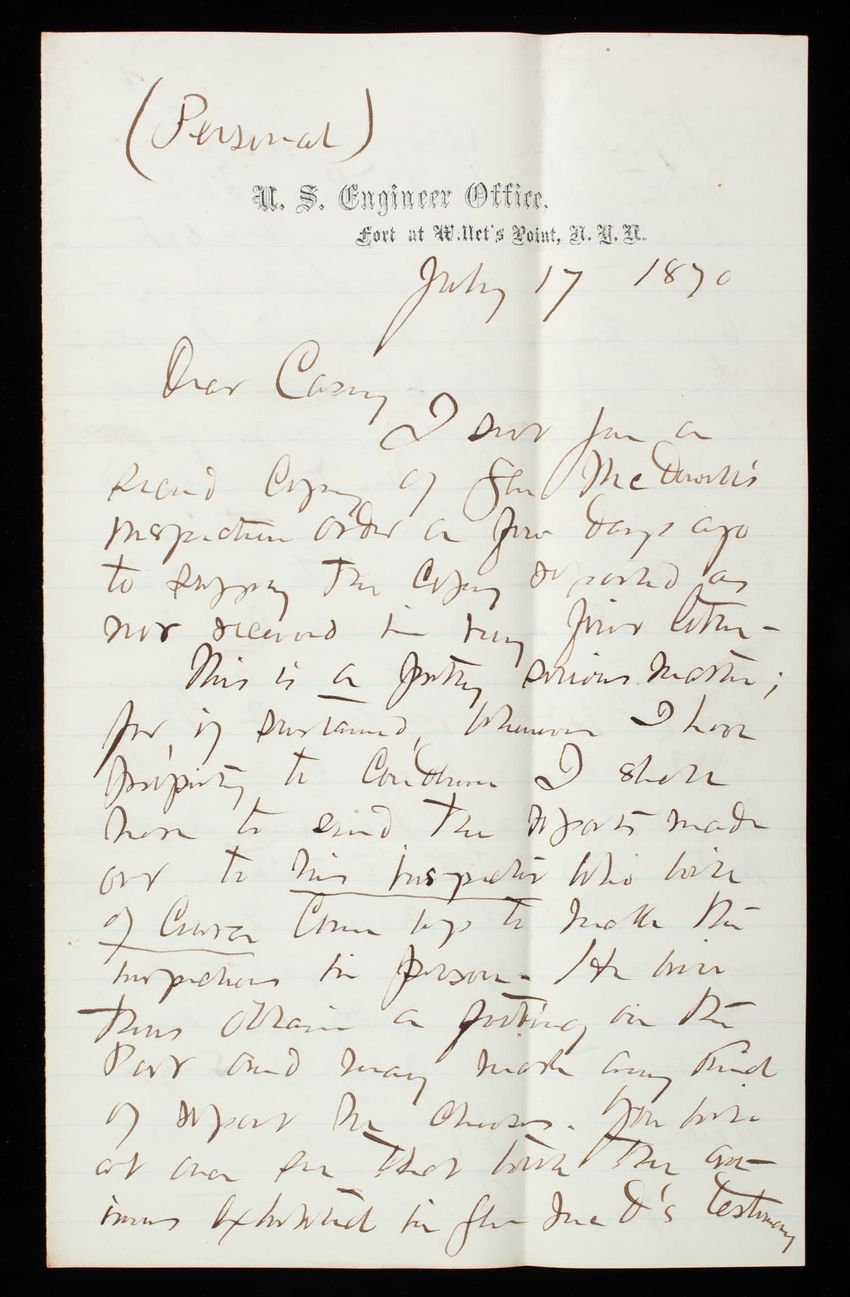 (Personal)
U. S. Engineer Office.
Fort at Willet's Point, N. Y. H.
July 17 1870
Dear Casey
I sent you a
second copy of Gen McDowell's
inspection order a few days ago
to supply the copy reported as
not received in your first letter -
This is a pretty serious matter;
for, if sustained, whenever I have
property to condemn I shall
have to send the reports made
out to his inspector who will
of course come up to make the
inspections in person - He will
thus obtain a footing on the
Post and may make any kind
of report he chooses. You will
at once see that with the ani-
mus exhibited in Gen Mc D's testimony